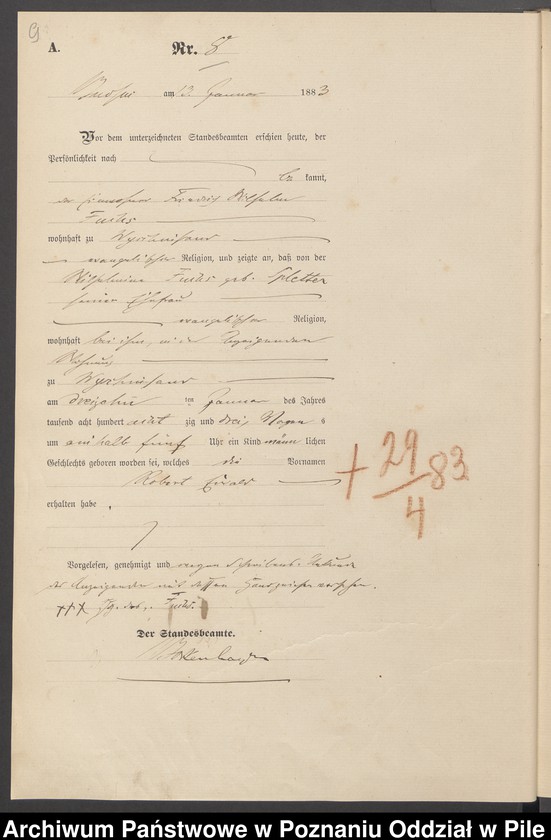 9
A.
Nr. 8
am 13. Januar 1883
Vor dem unterzeichneten Standesbeamten erschien heute, der
Persönlichkeit nach
be kannt,
der Friedrich Wilhelm
Fuchs
wohnhaft zu
evangelischer Religion, und zeigte an, daß von der
Wilhelmine Fuchs geb. Spletter
seiner Ehefrau
evangelischer Religion,
wohnhaft bei ihm, in der
Wohnung
zu
am dreizehn ten Januar des Jahres
tausend acht hundert acht zig und drei, s
um ein halb fünf Uhr ein Kind männ lichen
Geschlechts geboren worden sei, welches die Vornamen
Robert Ewald
erhalten habe.
Vorgelesen, genehmigt und wegen Schreibens
der Anzeigender mit dessen Handzeichen versehen.
+++ Fuchs.
Der Standesbeamte.
+ 29/4 83
Archiwum Państwowe w Poznaniu Oddział w Pile